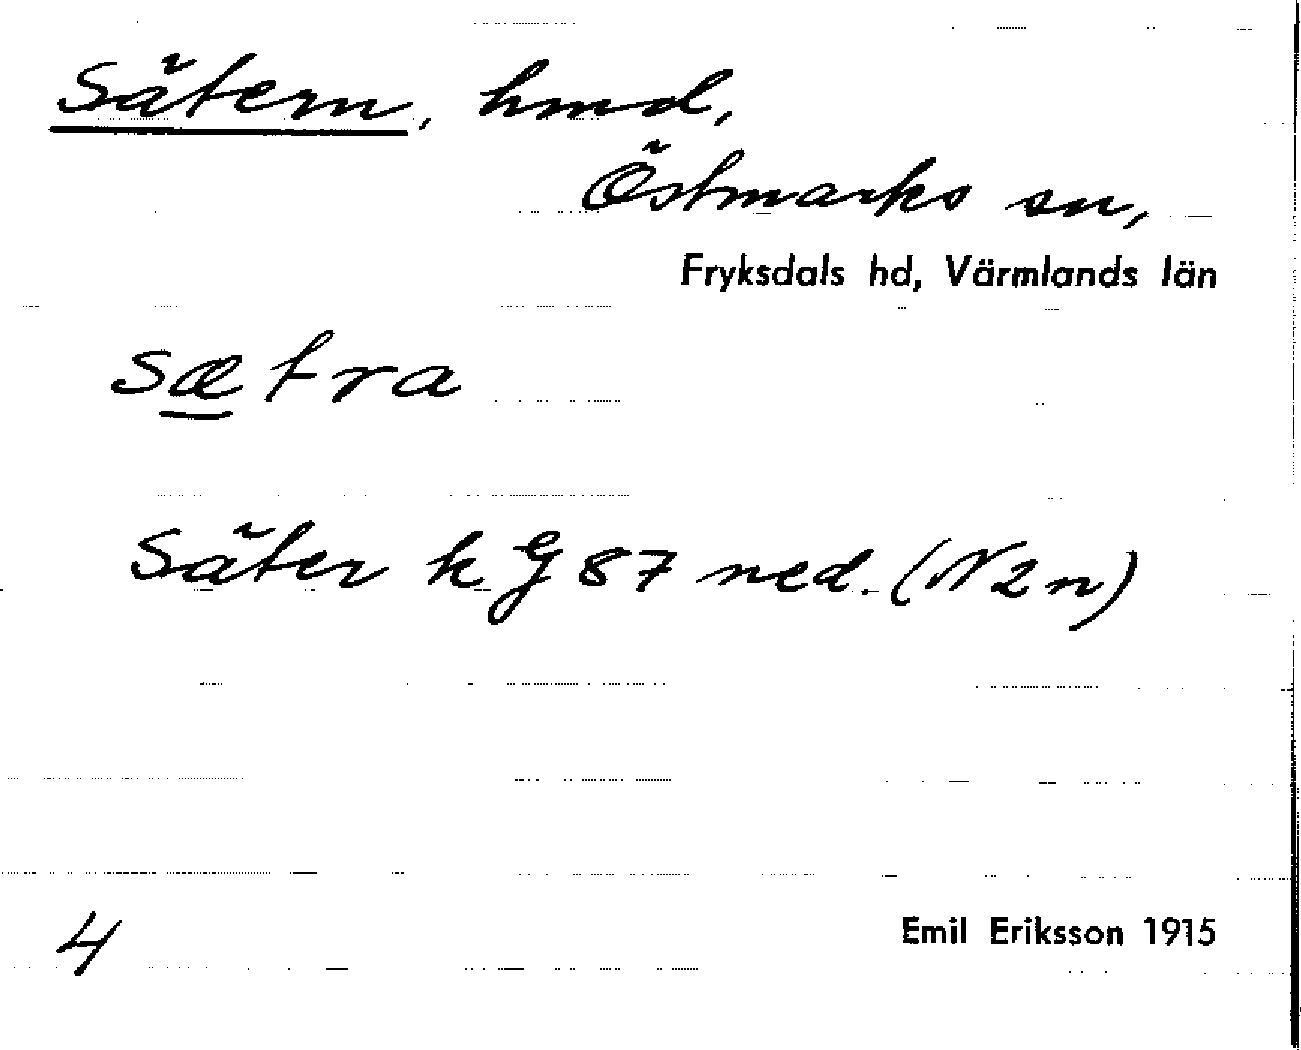 Sätern, hmd,
Östmarks sn,
Fryksdals hd, Värmlands län
sætra
Säter k G 87 ned. (N2n)
4
Emil Eriksson 1915